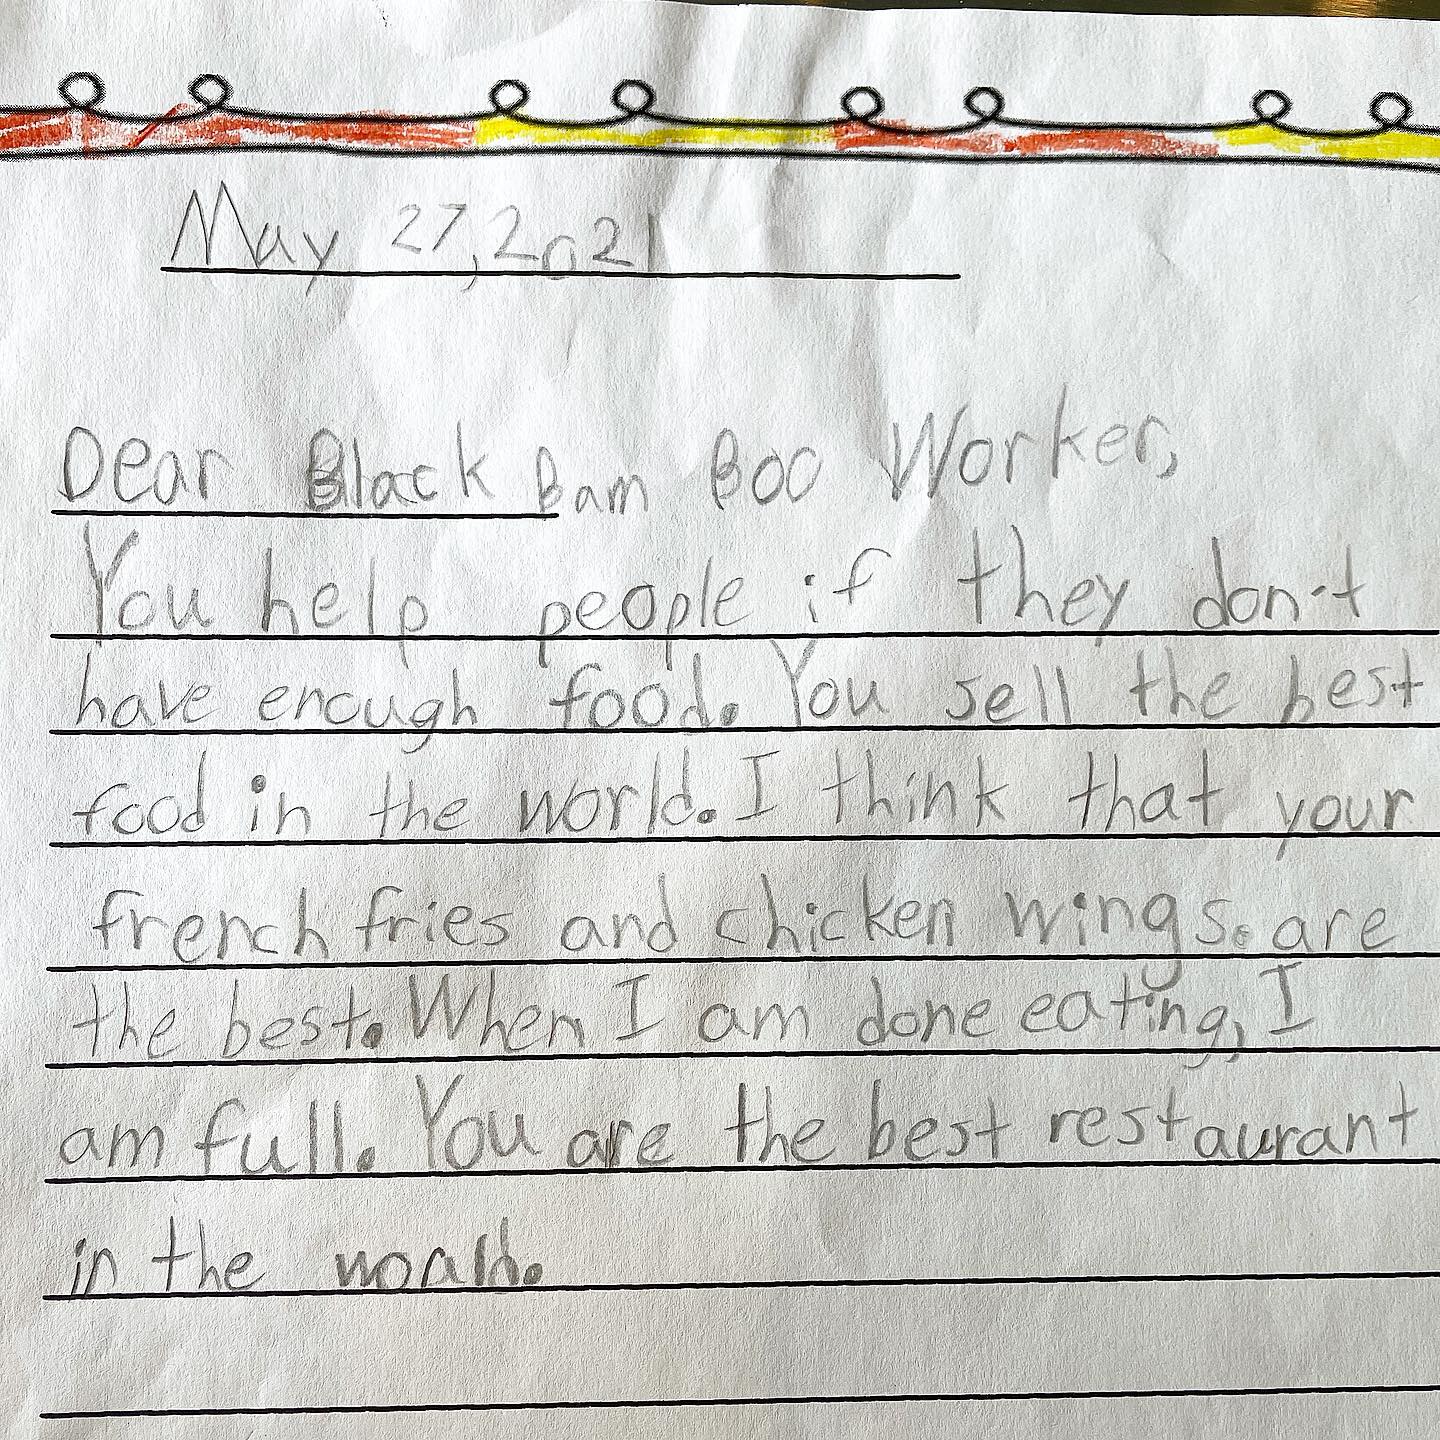 May 27, 2021
Dear Black Bam Boo Worker,
You help people if they don't
have enough food. You sell the best
food in the world. I think that your
french fries and chicken wings. are
the best. When I am done eating, I
am full. You are the best restaurant
in the